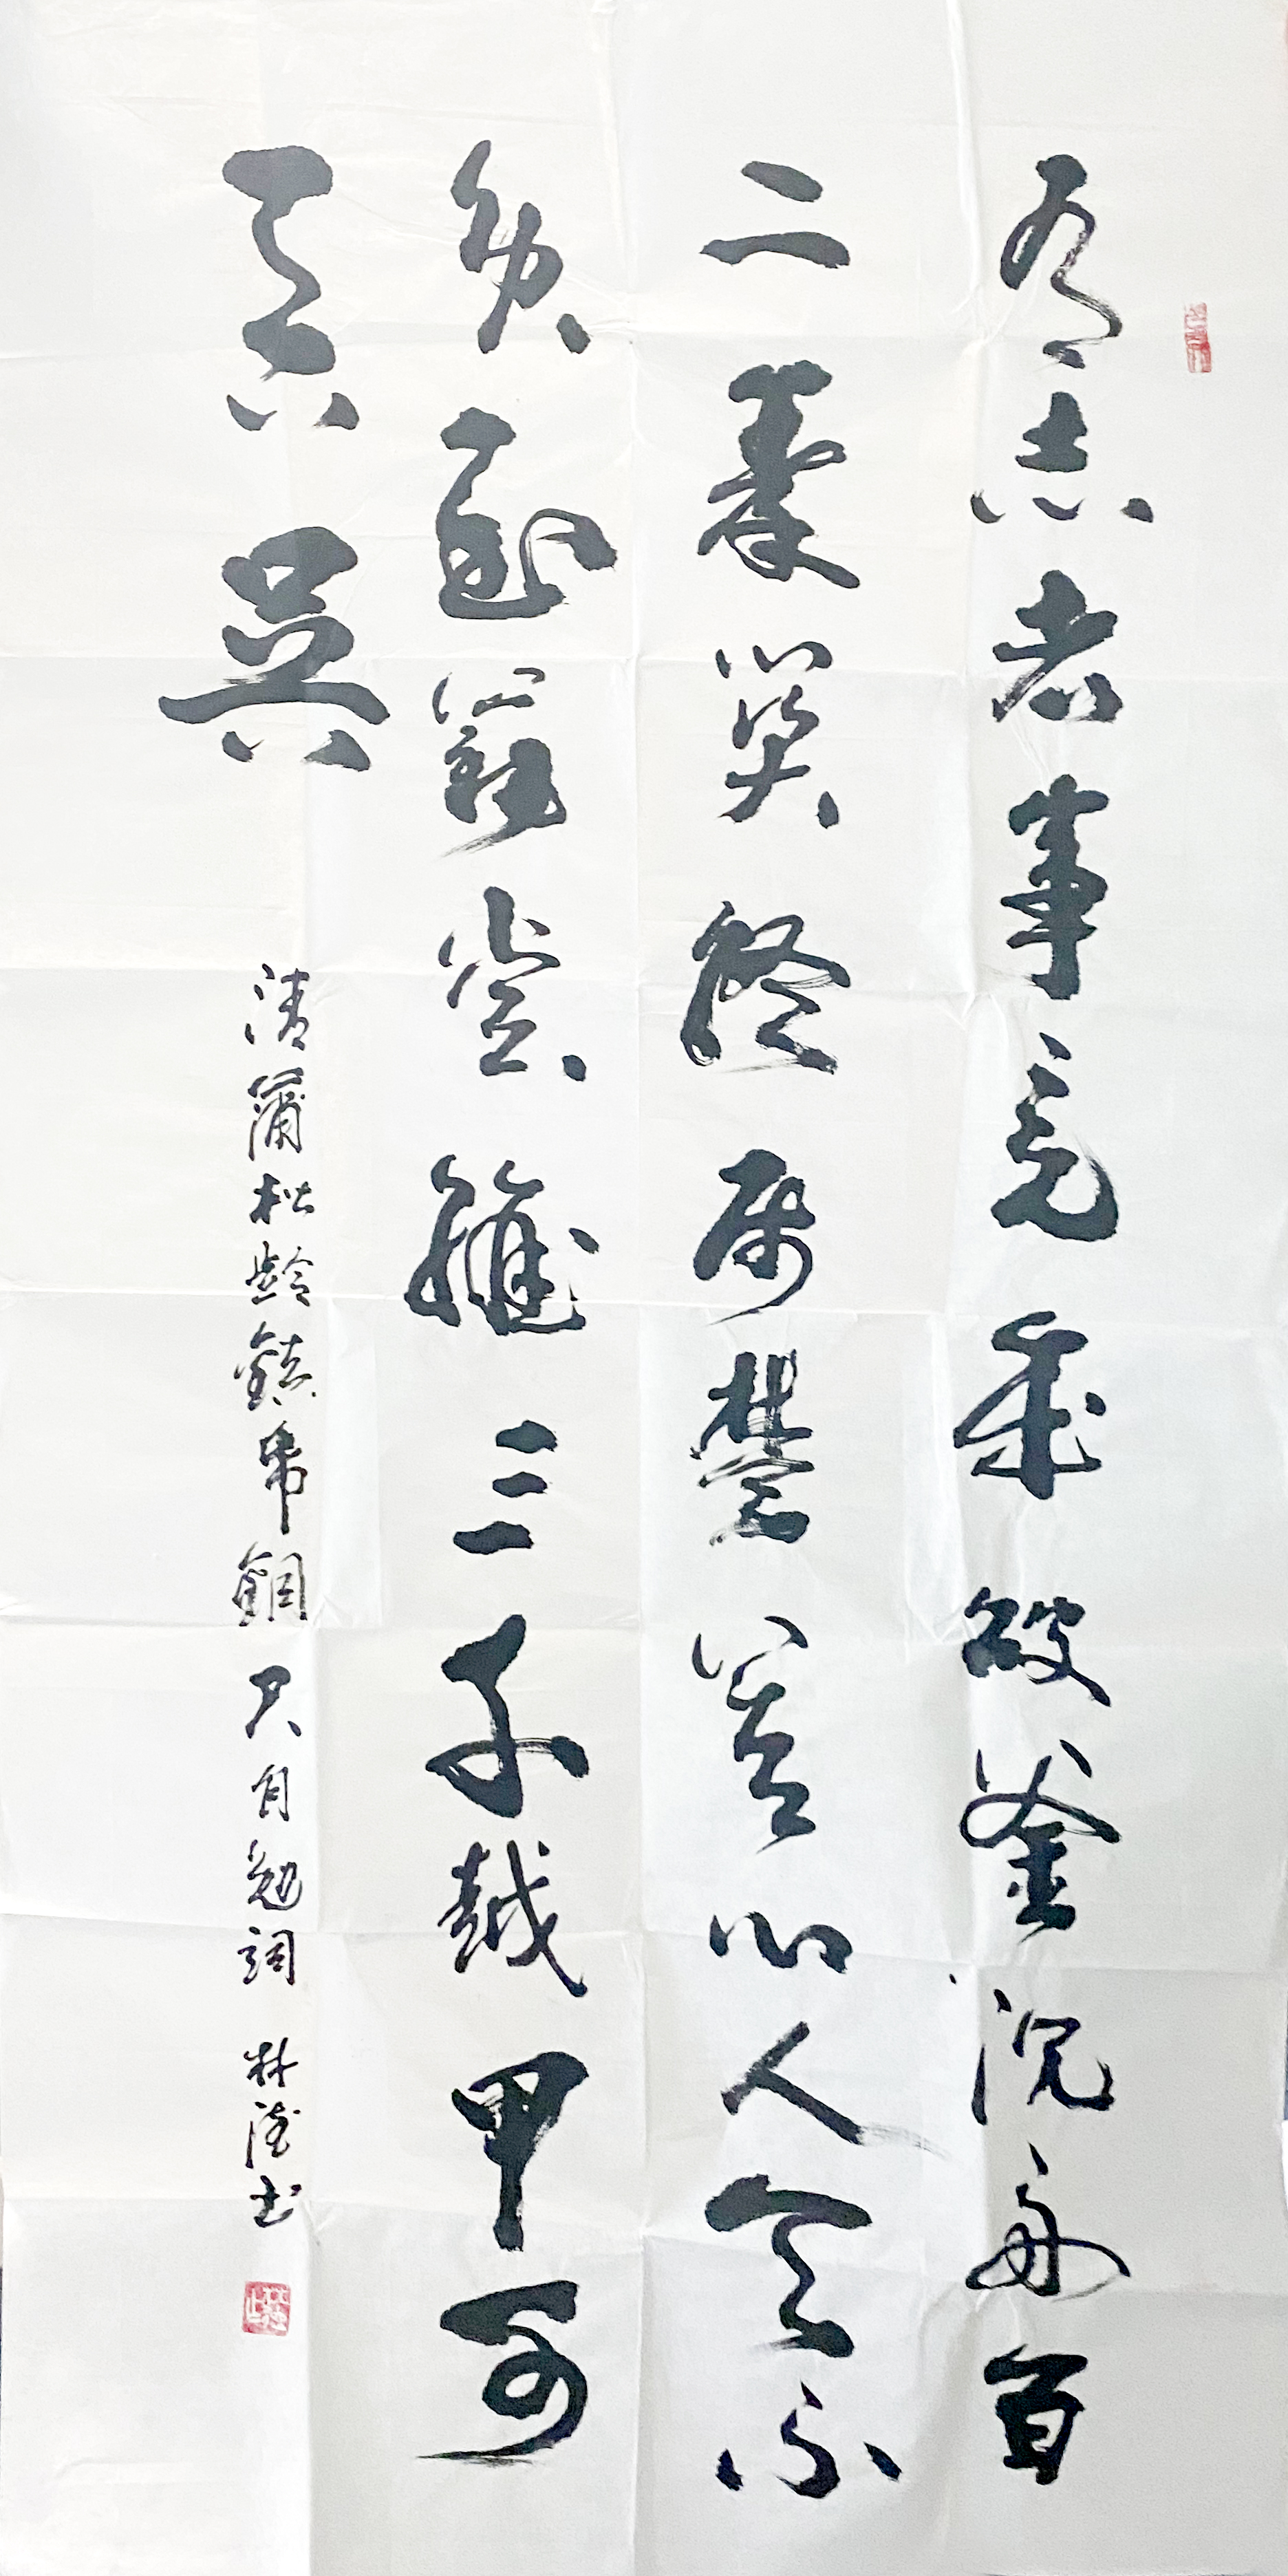 有志者事竟成破釜沉舟百
二秦关終属楚苦心人天不
负卧薪尝膽三千越甲可
吞吴
清蒲松龄鎮帋銅尺自勉詞 林书